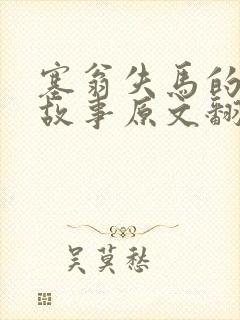 塞翁失馬的
故事原文翻
吴莫愁